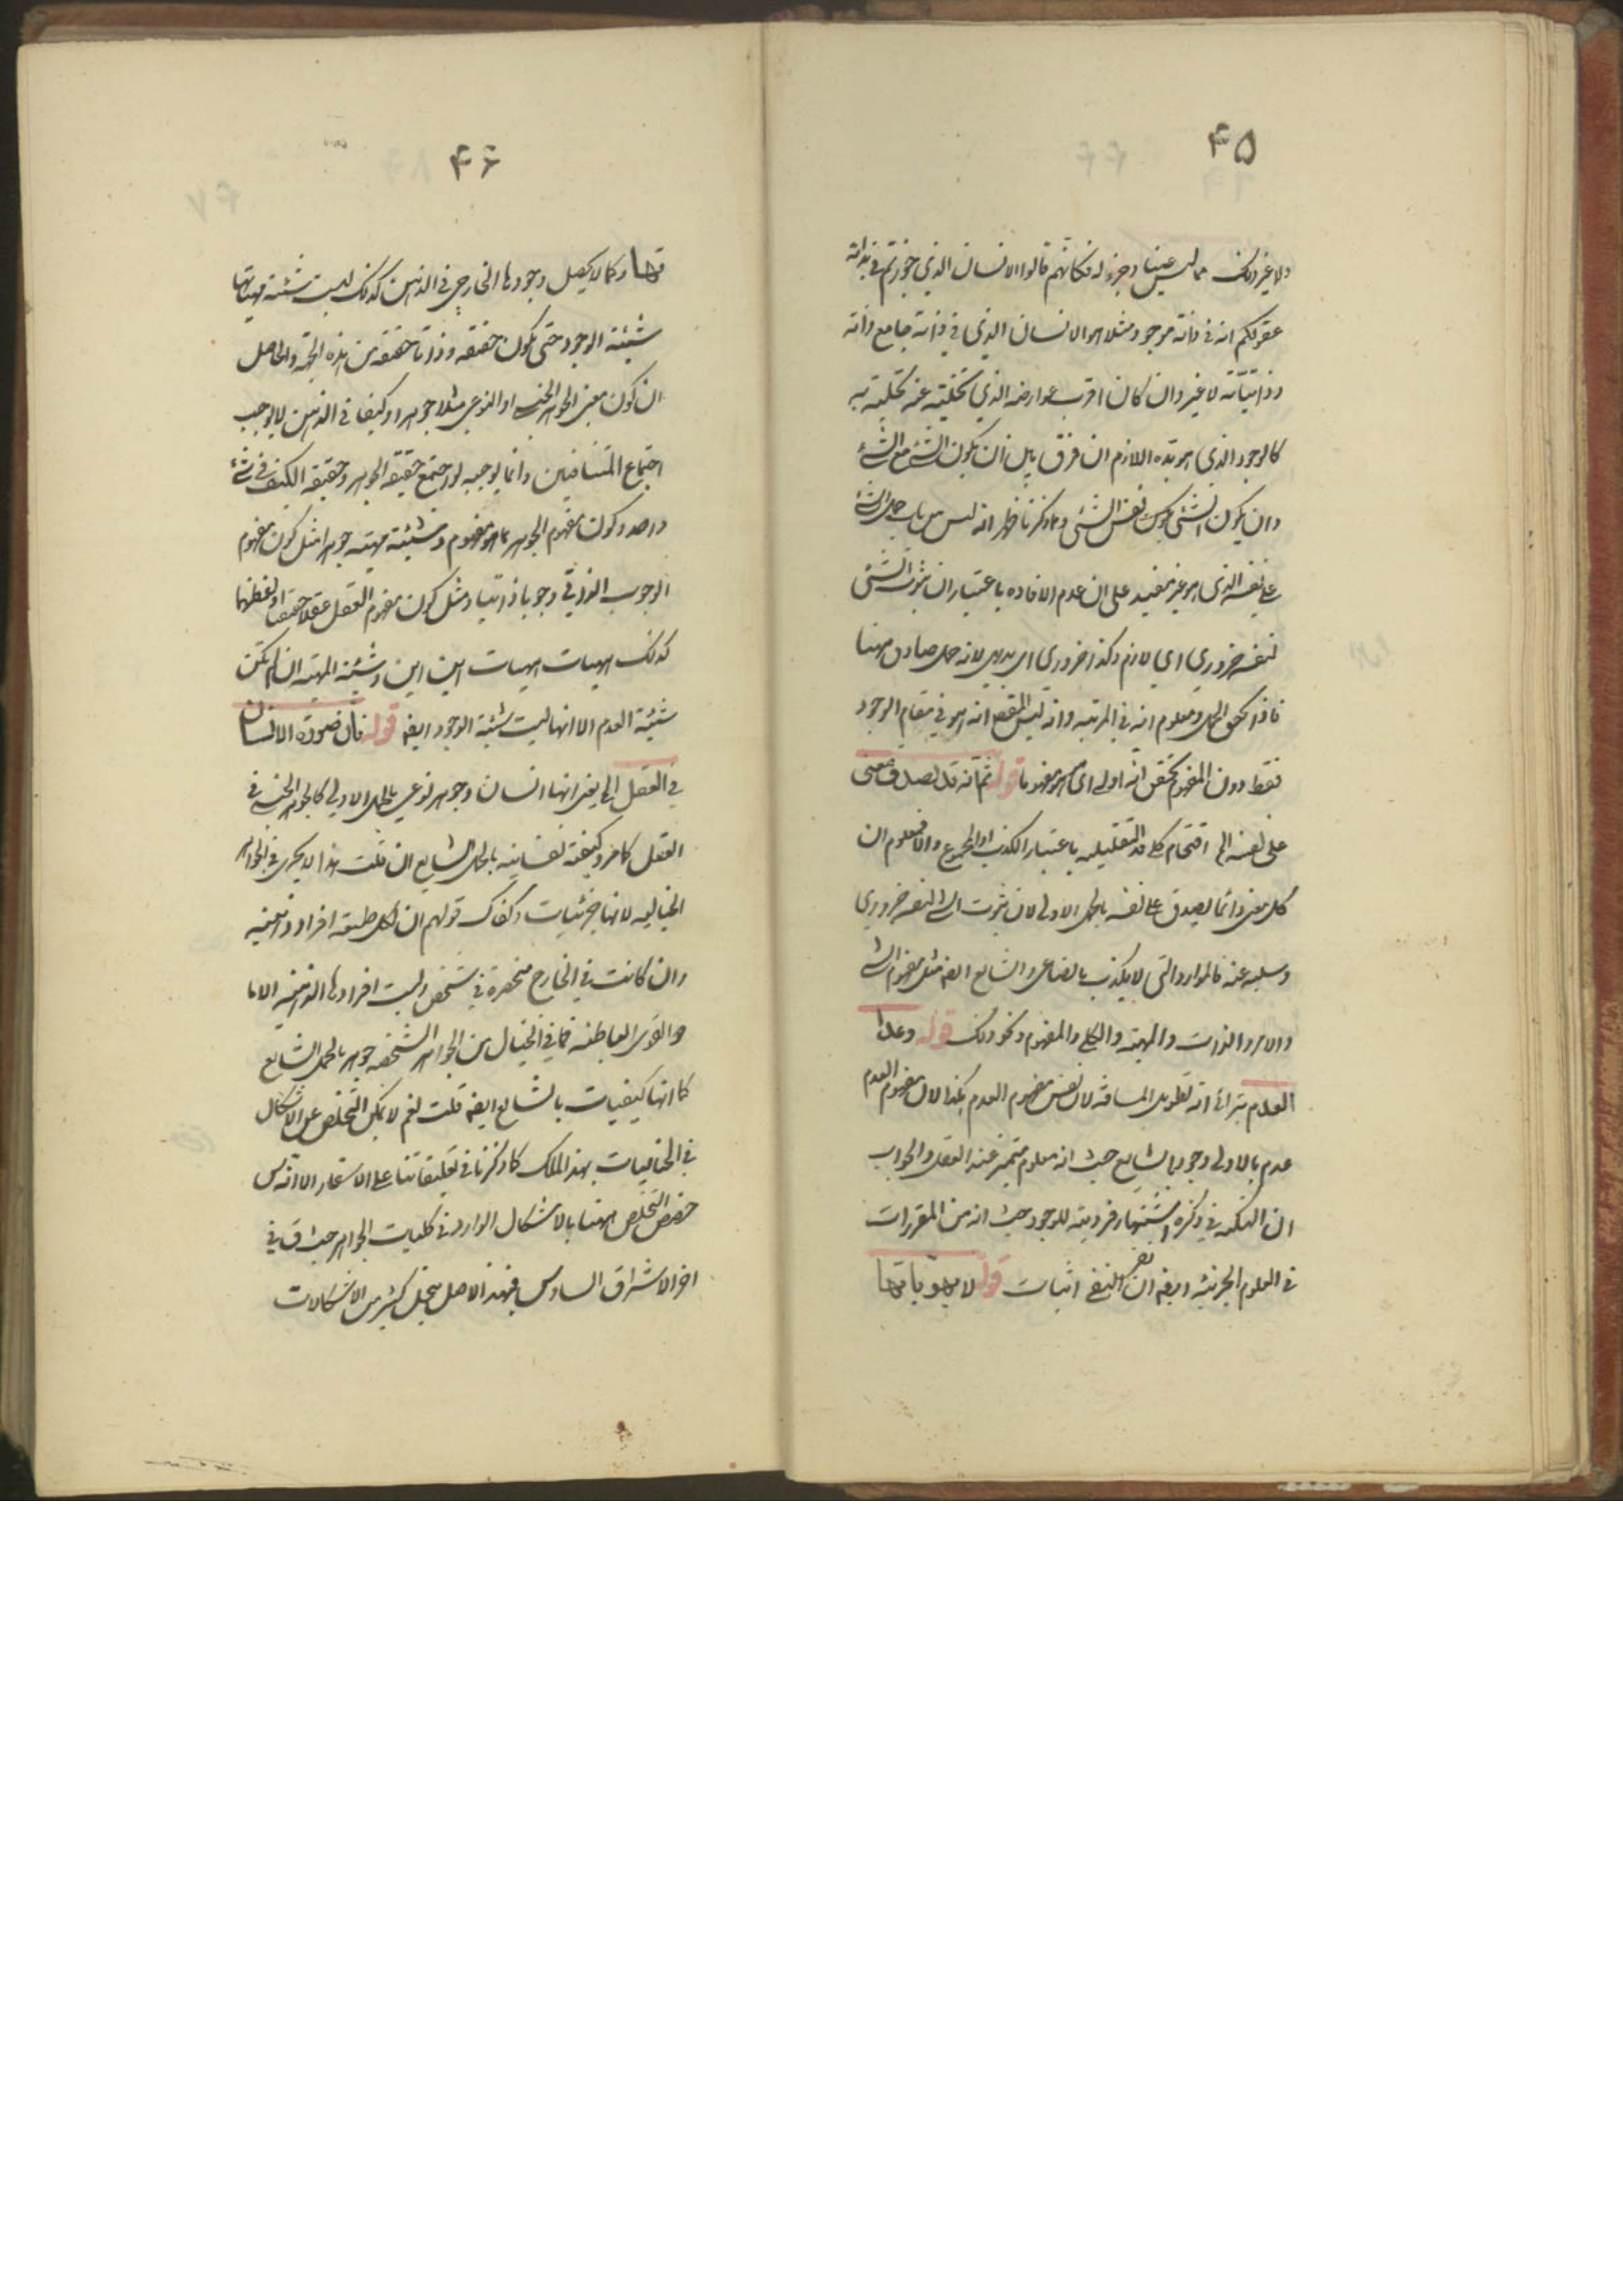 ۴۵
ولا غير ذلك مما ليس عينا وجزء له فكانهم قالوا الانسان الذي جوزتم في بداته
عقولكم انه في ذاته موجود مثلا هو الانسان الذي في ذاته جامع ذاته
وذاتياته لا غير وان كان اقرب عوارضه الذي تخليته عنه تحليته به
كالوجود الذي هو بده اللازم ان فرق بين ان يكون الشئ مع الشئ
وان يكون الشئ نفس الشئ ومما ذكرنا ظهر انه ليس من باب حمل الشئ
على نفسه الذي هو غير مفيد على ان عدم الافاده باعتبار ان ثبوت الشئ
لنفسه ضروري اي لازم وكذا ضروري اي بديهي لانه حمل صادق هيهنا
فاذا تحقق الحمل ومعلوم انه في المرتبه وانه ليس المقصود انه هو في مقام الوجود
فقط دون المفهوم تحقق انه اولى اي هو هو مفهوما قوله ثم انه قد يصدق معنى
على نفسه الخ اقتحام كلمة قد التقليليه باعتبار الكذب او المجموع والا فمعلوم ان
كل معنى دائما يصدق على نفسه بالحمل الاولى لان ثبوت الشئ لنفسه ضروري
وسلبه عنه فالموارد التي لا يكذب بالصناعي والشايع ايضه مثل مفهوم الشئ
والامر والذات والمهيته والكلي والمفهوم ونحو ذلك قوله وعدم
العدم يترائى انه تطويل المسافة لان نفس مفهوم العدم هكذا لان مفهوم العدم
عدم بالاولى وجود بالشايع حيث انه معلوم متميز عند العقل والجواب
ان النكته في ذكره اشتهار فرديته للوجود حيث انه من المقررات
في العلوم الجزئيه وايضه ان نفى النفي اثبات قوله لا بهوياتها
۴۶
تها وكما لا يحصل وجودها الخارجي في الذهن كذلك ليست شيئية مهياتها
شيئية الوجود حتى تكون حقيقه وذاتا حقيقه من هذه الجهة والحاصل
ان كون معنى الجوهر الجنسي او النوعي مثلا جوهرا وكيفا في الذهن لا يوجب
اجتماع المتنافيين وانما يوجبه لو اجتمع حقيقة الجوهر وحقيقة الكيف في شئ
واحد وكون مفهوم الجوهر بما هو مفهوم وشيئية مهيته جوهرا مثل كون مفهوم
الوجوب الذاتي وجوبا ذاتيا ومثل كون مفهوم العقل عقلا حقيقيا او لفظهما
كذلك هيهات هيهات اين اين وشيئية المهيته ان لم تكن
شيئية العدم الا انها ليست شيئية الوجود ايضه قوله فان صورة الانسان
في العقل الخ يعنى انها انسان وجوهر نوعي بالحمل الاولى كالجوهر الجنسي في
العقل كما مر وكيفيته نفسانيه بالحمل الشايع ان قلت هذا لا يجري في الجواهر
الخياليه لانها جزئيات وكذلك قولهم ان لكل طبيعة افراد ذهنيه
وان كانت في الخارج منحصرة في شخص وليست افرادها الذهنيه الا ما
هو القوى الباطنه فما في الخيال من الجواهر الشخصيه جوهر بالحمل الشايع
كما انها كيفيات بالشايع ايضه قلت نعم لا يمكن التخلص عن الاشكال
في الخياليات بهذا المسلك كما ذكرنا في تعليقاتنا على الاسفار الا انه قدس
خصص التخلص هيهنا بالاشكال الوارد في كليات الجواهر حيث ق في
اخر الاشراق السادس فبهذا الاصل ينحل كثير من الاشكالات